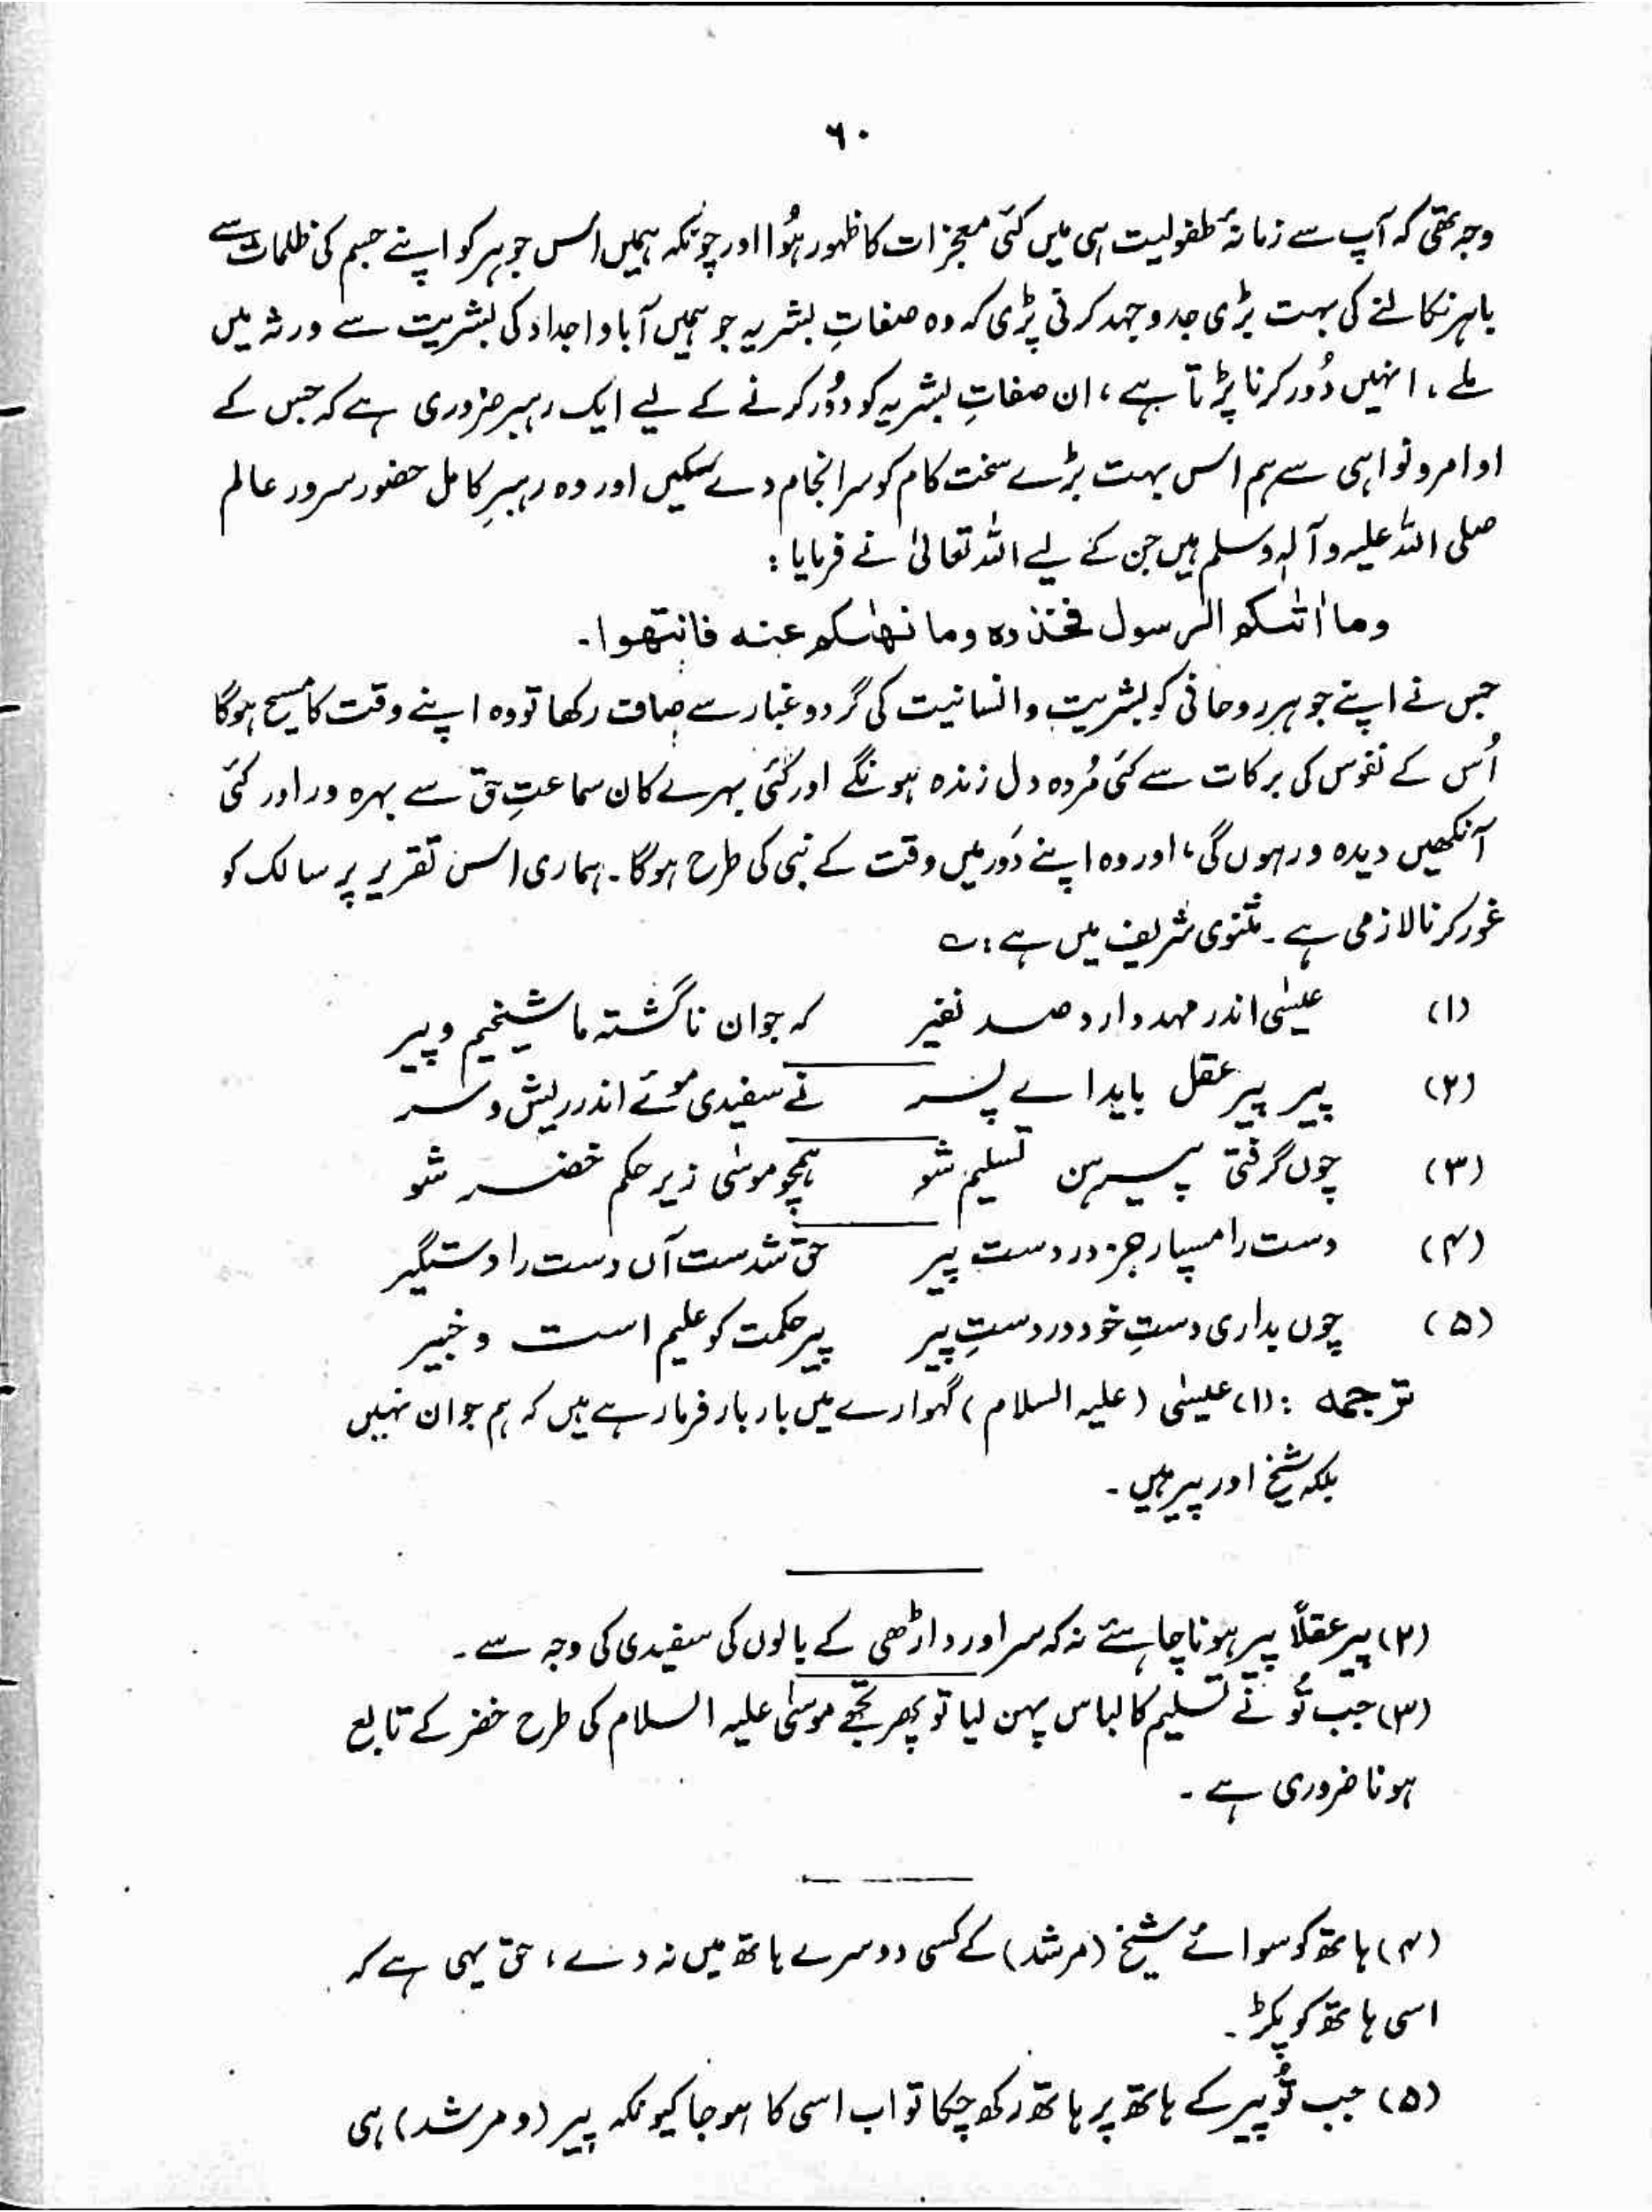 ۶۰
وجہ تھی کہ آپ سے زمانۂ طفولیت ہی میں کئی معجزات کا ظہور ہُوا اور چونکہ ہمیں اس جوہر کو اپنے جسم کی ظلمات سے
باہر نکالنے کی بہت بڑی جدوجہد کرنی پڑی کہ وہ صفاتِ بشریہ جو ہمیں آبا و اجداد کی بشریت سے ورثہ میں
ملے، انہیں دُور کرنا پڑتا ہے، ان صفاتِ بشریہ کو دُور کرنے کے لیے ایک رہبر ضروری ہے کہ جس کے
اوامر و نواہی سے ہم اس بہت بڑے سخت کام کو سرانجام دے سکیں اور وہ رہبرِ کامل حضور سرور عالم
صلی اللہ علیہ وآلہٖ وسلم ہیں جن کے لیے اللہ تعالیٰ نے فرمایا :
وما اٰتٰکم الرسول فخذوہ وما نھٰکم عنہ فانتھوا۔
جس نے اپنے جوہر روحانی کو بشریت و انسانیت کی گرد و غبار سے صاف رکھا تو وہ اپنے وقت کا مسیح ہوگا
اُس کے نفوس کی برکات سے کئی مُردہ دل زندہ ہونگے اور کئی بہرے کان سماعتِ حق سے بہرہ ور اور کئی
آنکھیں دیدہ ور ہوں گی، اور وہ اپنے دَور میں وقت کے نبی کی طرح ہوگا۔ ہماری اس تقریر پر سالک کو
غور کرنا لازمی ہے۔ مثنوی شریف میں ہے : ؎
(۱) عیسٰی اندر مہد دارد صد نفیر کہ جوان ناگشتہ ما شیخیم و پیر
(۲) پیر پیر عقل باید اے پسر نے سفیدی موئے اندر ریش و سر
(۳) چوں گرفتی پیرہن تسلیم شو ہمچو موسٰی زیر حکم خضر شو
(۴) دست را مسپار جز در دست پیر حق شدست آں دست را دستگیر
(۵) چوں بداری دستِ خود در دستِ پیر پیر حکمت کو علیم است و خبیر
ترجمہ : (۱) عیسٰی (علیہ السلام) گہوارے میں بار بار فرما رہے ہیں کہ ہم جوان نہیں
بلکہ شیخ اور پیر ہیں۔
(۲) پیر عقلاً پیر ہونا چاہئے نہ کہ سر اور داڑھی کے بالوں کی سفیدی کی وجہ سے۔
(۳) جب تُو نے تسلیم کا لباس پہن لیا تو پھر تجھے موسٰی علیہ السلام کی طرح خضر کے تابع
ہونا ضروری ہے۔
(۴) ہاتھ کو سوائے شیخ (مرشد) کے کسی دوسرے ہاتھ میں نہ دے، حق یہی ہے کہ
اسی ہاتھ کو پکڑ۔
(۵) جب تُو پیر کے ہاتھ پر ہاتھ رکھ چکا تو اب اسی کا ہو جا کیونکہ پیر (و مرشد) ہی